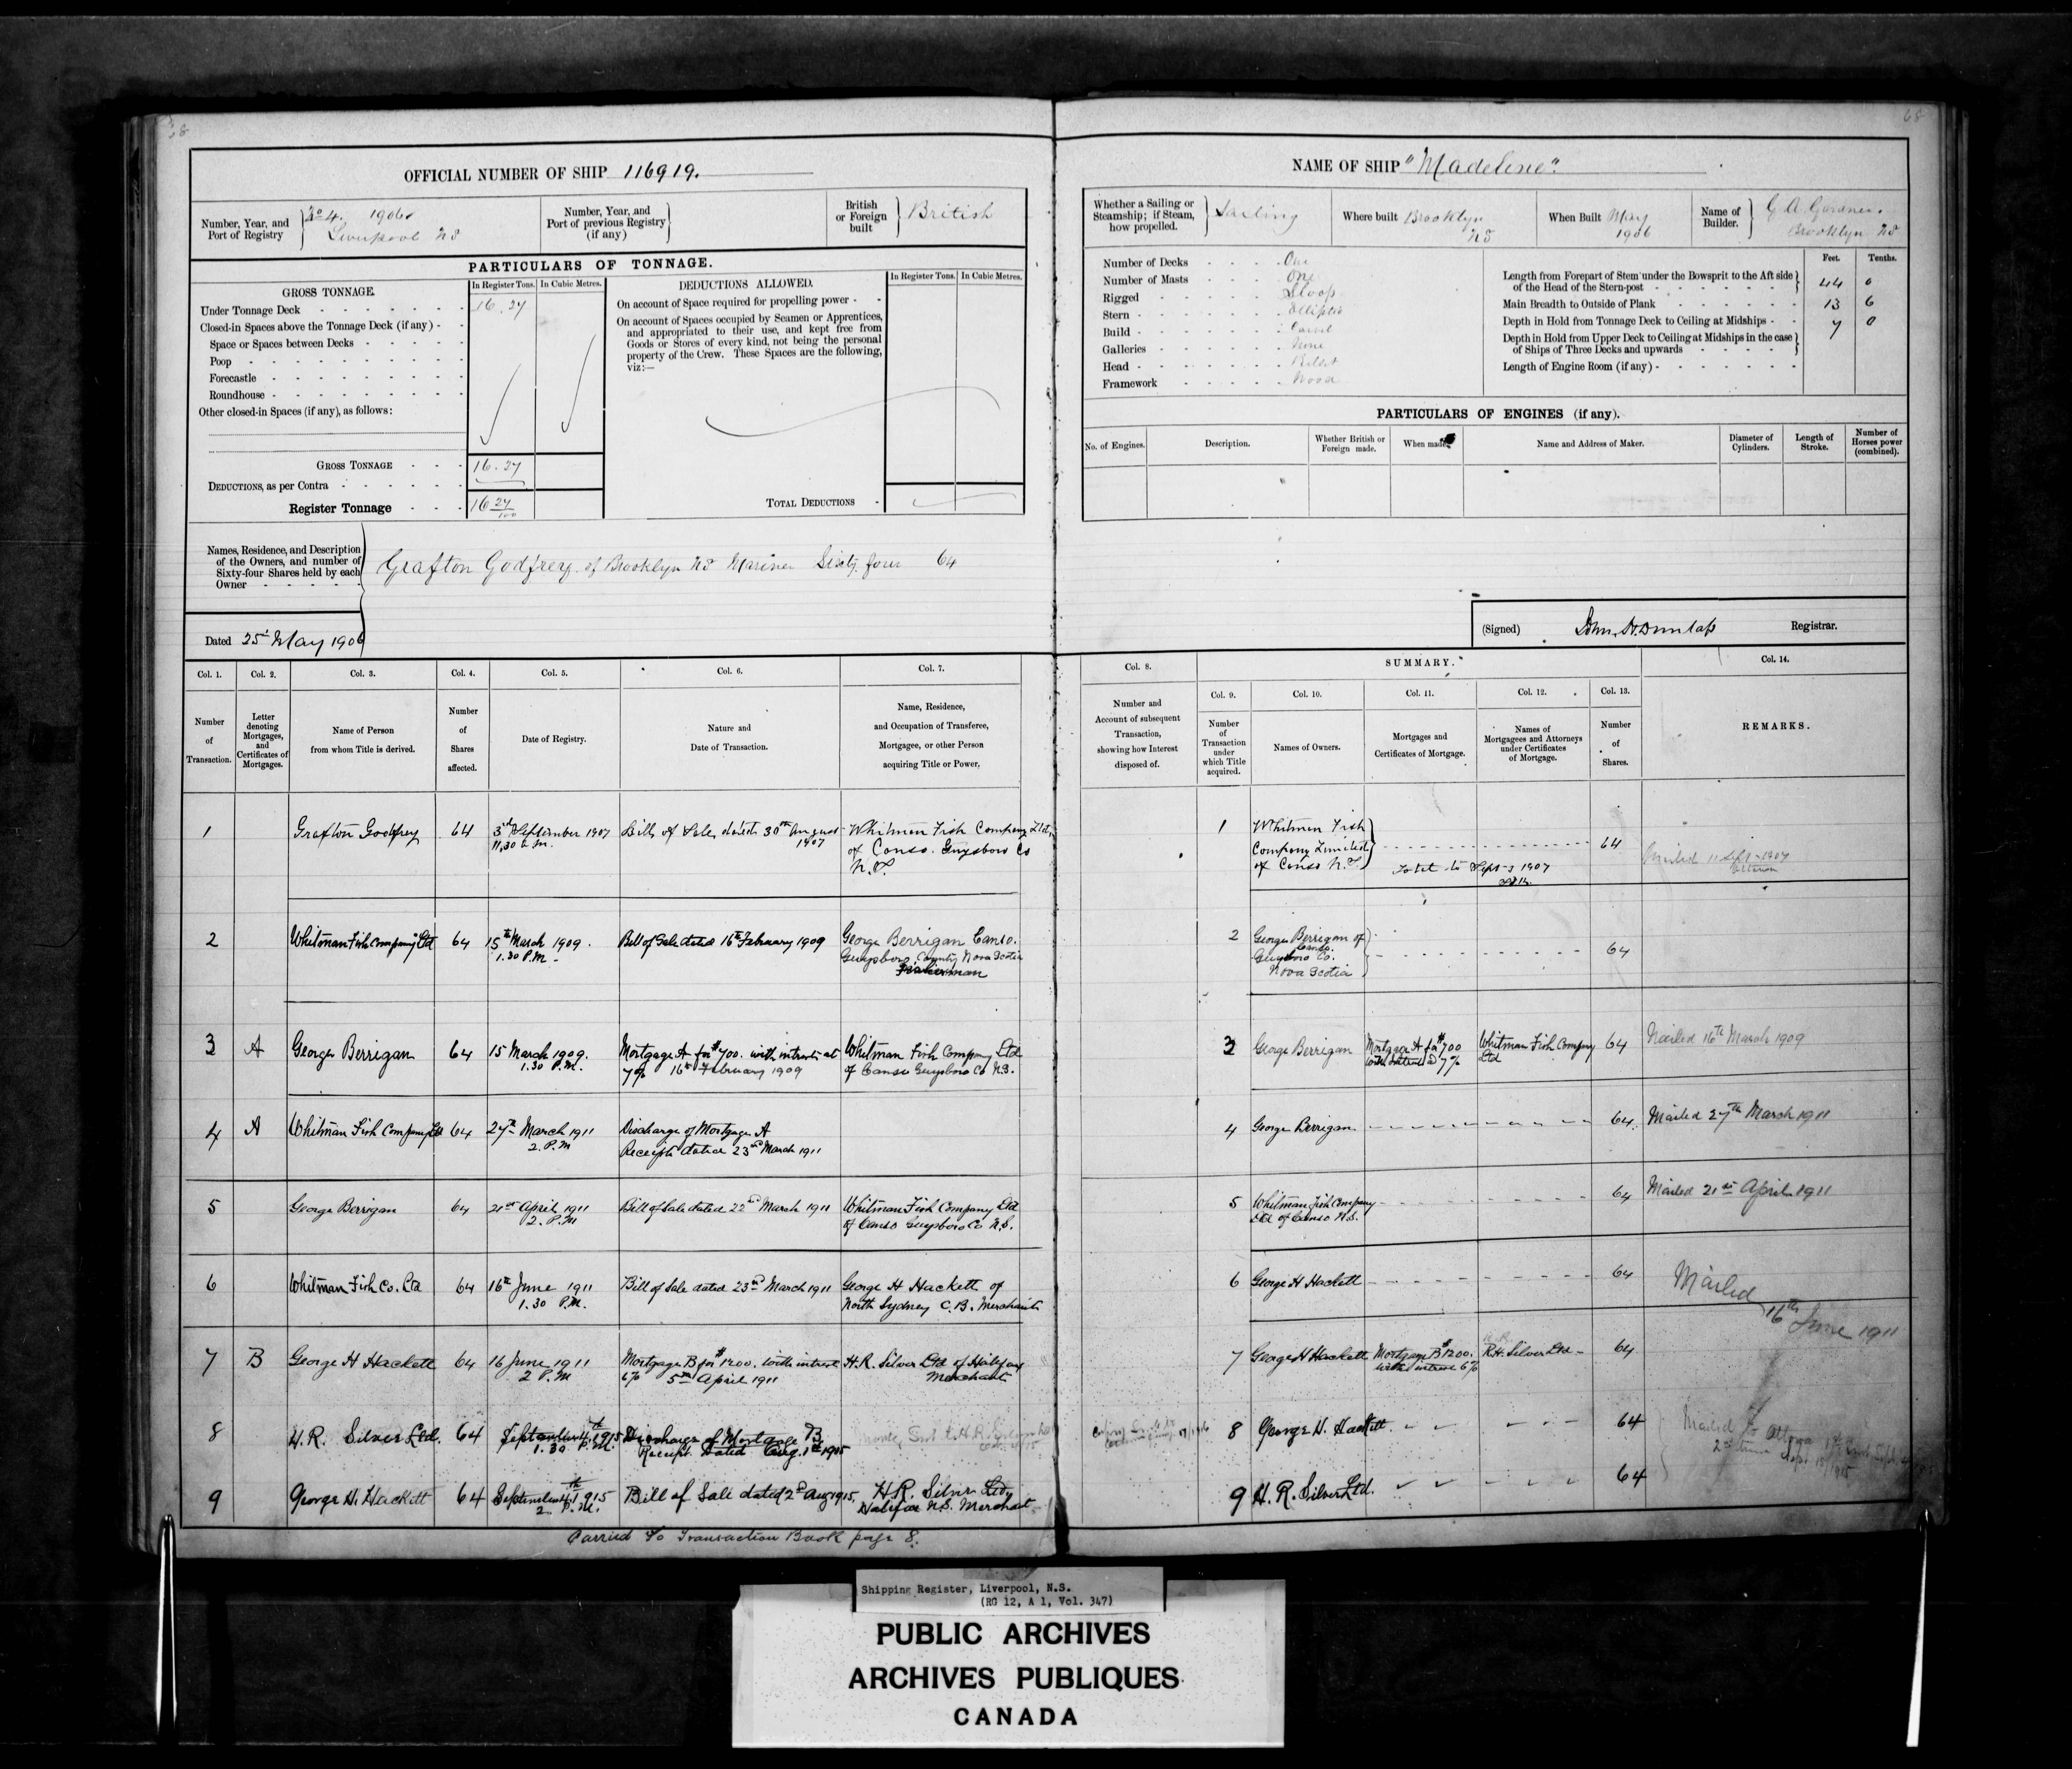 68
68
OFFICIAL NUMBER OF SHIP 116919.
Number, Year, and Port of Registry
No 4. 1906
Liverpool NS
Number, Year, and Port of previous Registry (if any)
British or Foreign built
British
PARTICULARS OF TONNAGE.
GROSS TONNAGE.
In Register Tons.
In Cubic Metres.
Under Tonnage Deck
16.27
Closed-in Spaces above the Tonnage Deck (if any) -
Space or Spaces between Decks
Poop
Forecastle
Roundhouse
Other closed-in Spaces (if any), as follows:
GROSS TONNAGE
16.27
DEDUCTIONS, as per Contra
Register Tonnage
16 27/100
DEDUCTIONS ALLOWED.
In Register Tons.
In Cubic Metres.
On account of Space required for propelling power -
On account of Spaces occupied by Seamen or Apprentices,
and appropriated to their use, and kept free from
Goods or Stores of every kind, not being the personal
property of the Crew. These Spaces are the following,
viz:—
TOTAL DEDUCTIONS
Names, Residence, and Description
of the Owners, and number of
Sixty-four Shares held by each
Owner
Grafton Godfrey of Brooklyn NS Mariner Sixty four 64
Dated 25 May 1906
NAME OF SHIP "Madeline".
Whether a Sailing or Steamship; if Steam, how propelled.
Sailing
Where built Brooklyn NS
When Built May 1906
Name of Builder.
G A Gardner.
Brooklyn NS
Number of Decks One
Number of Masts One
Rigged Sloop
Stern Elliptic
Build Carvel
Galleries None
Head Billet
Framework Wood
Feet. Tenths.
Length from Forepart of Stem under the Bowsprit to the Aft side
of the Head of the Stern-post 44 0
Main Breadth to Outside of Plank 13 6
Depth in Hold from Tonnage Deck to Ceiling at Midships 7 0
Depth in Hold from Upper Deck to Ceiling at Midships in the case
of Ships of Three Decks and upwards
Length of Engine Room (if any)
PARTICULARS OF ENGINES (if any).
No. of Engines.
Description.
Whether British or Foreign made.
When made.
Name and Address of Maker.
Diameter of Cylinders.
Length of Stroke.
Number of Horses power (combined).
(Signed) Dunlap Registrar.
Col. 1. Col. 2. Col. 3. Col. 4. Col. 5. Col. 6. Col. 7.
Number of Transaction.
Letter denoting Mortgages, and Certificates of Mortgages.
Name of Person from whom Title is derived.
Number of Shares affected.
Date of Registry.
Nature and Date of Transaction.
Name, Residence, and Occupation of Transferee, Mortgagee, or other Person acquiring Title or Power.
Col. 8.
Number and Account of subsequent Transaction, showing how Interest disposed of.
SUMMARY.
Col. 9. Col. 10. Col. 11. Col. 12. Col. 13.
Number of Transaction under which Title acquired.
Names of Owners.
Mortgages and Certificates of Mortgage.
Names of Mortgagees and Attorneys under Certificates of Mortgage.
Number of Shares.
Col. 14.
REMARKS.
1 Grafton Godfrey 64 3rd September 1907 11,30 a.m. Bill of Sale, dated 30th August 1907 Whitman Fish Company Ltd, of Canso. Guysboro Co N.S.
1 Whitman Fish Company Limited of Canso N.S. 64 Mailed 11 Sept 1907
2 Whitman Fish Company Ltd 64 15th March 1909. 1.30 P.M. Bill of Sale dated 16th February 1909 George Berrigan Canso. Guysboro County Nova Scotia Fisherman
2 George Berrigan of Canso. Guysboro Co. Nova Scotia 64
3 A George Berrigan 64 15 March 1909. 1.30 P.M. Mortgage A for $700. with interest at 7% 16th February 1909 Whitman Fish Company Ltd of Canso Guysboro Co N.S.
3 George Berrigan Mortgage A for $700 with interest @ 7% Whitman Fish Company Ltd 64 Mailed 16th March 1909
4 A Whitman Fish Company Ltd 64 27th March 1911 2. P.M Discharge of Mortgage A Receipt dated 23rd March 1911
4 George Berrigan 64 Mailed 27th March 1911
5 George Berrigan 64 21st April 1911 2. P.M Bill of Sale dated 22nd March 1911 Whitman Fish Company Ltd of Canso Guysboro Co N.S.
5 Whitman Fish Company Ltd of Canso N.S. 64 Mailed 21st April 1911
6 Whitman Fish Co. Ltd 64 16th June 1911 1.30 P.M. Bill of Sale dated 23rd March 1911 George H Hackett of North Sydney C.B. Merchant
6 George H Hackett 64 Mailed 16th June 1911
7 B George H Hackett 64 16 June 1911 2 P.M Mortgage B for $1200. with interest 6% 5th April 1911 H.R. Silver Ltd of Halifax Merchant
7 George H Hackett Mortgage B $1200. with interest 6% R.H. Silver Ltd 64
8 H.R. Silver Ltd. 64 September 4th 1915 1.30 P.M. Discharge of Mortgage B Receipt Dated Aug. 1st 1915
8 George H. Hackett. 64 Mailed to Ottawa
9 George H. Hackett 64 September 4th 1915 2 P.M. Bill of Sale dated 2nd Aug 1915, H.R. Silver Ltd, Halifax N.S. Merchant
9 H.R. Silver Ltd. 64
Carried to Transaction Book page 8.
Shipping Register, Liverpool, N.S.
(RG 12, A 1, Vol. 347)
PUBLIC ARCHIVES
ARCHIVES PUBLIQUES
CANADA